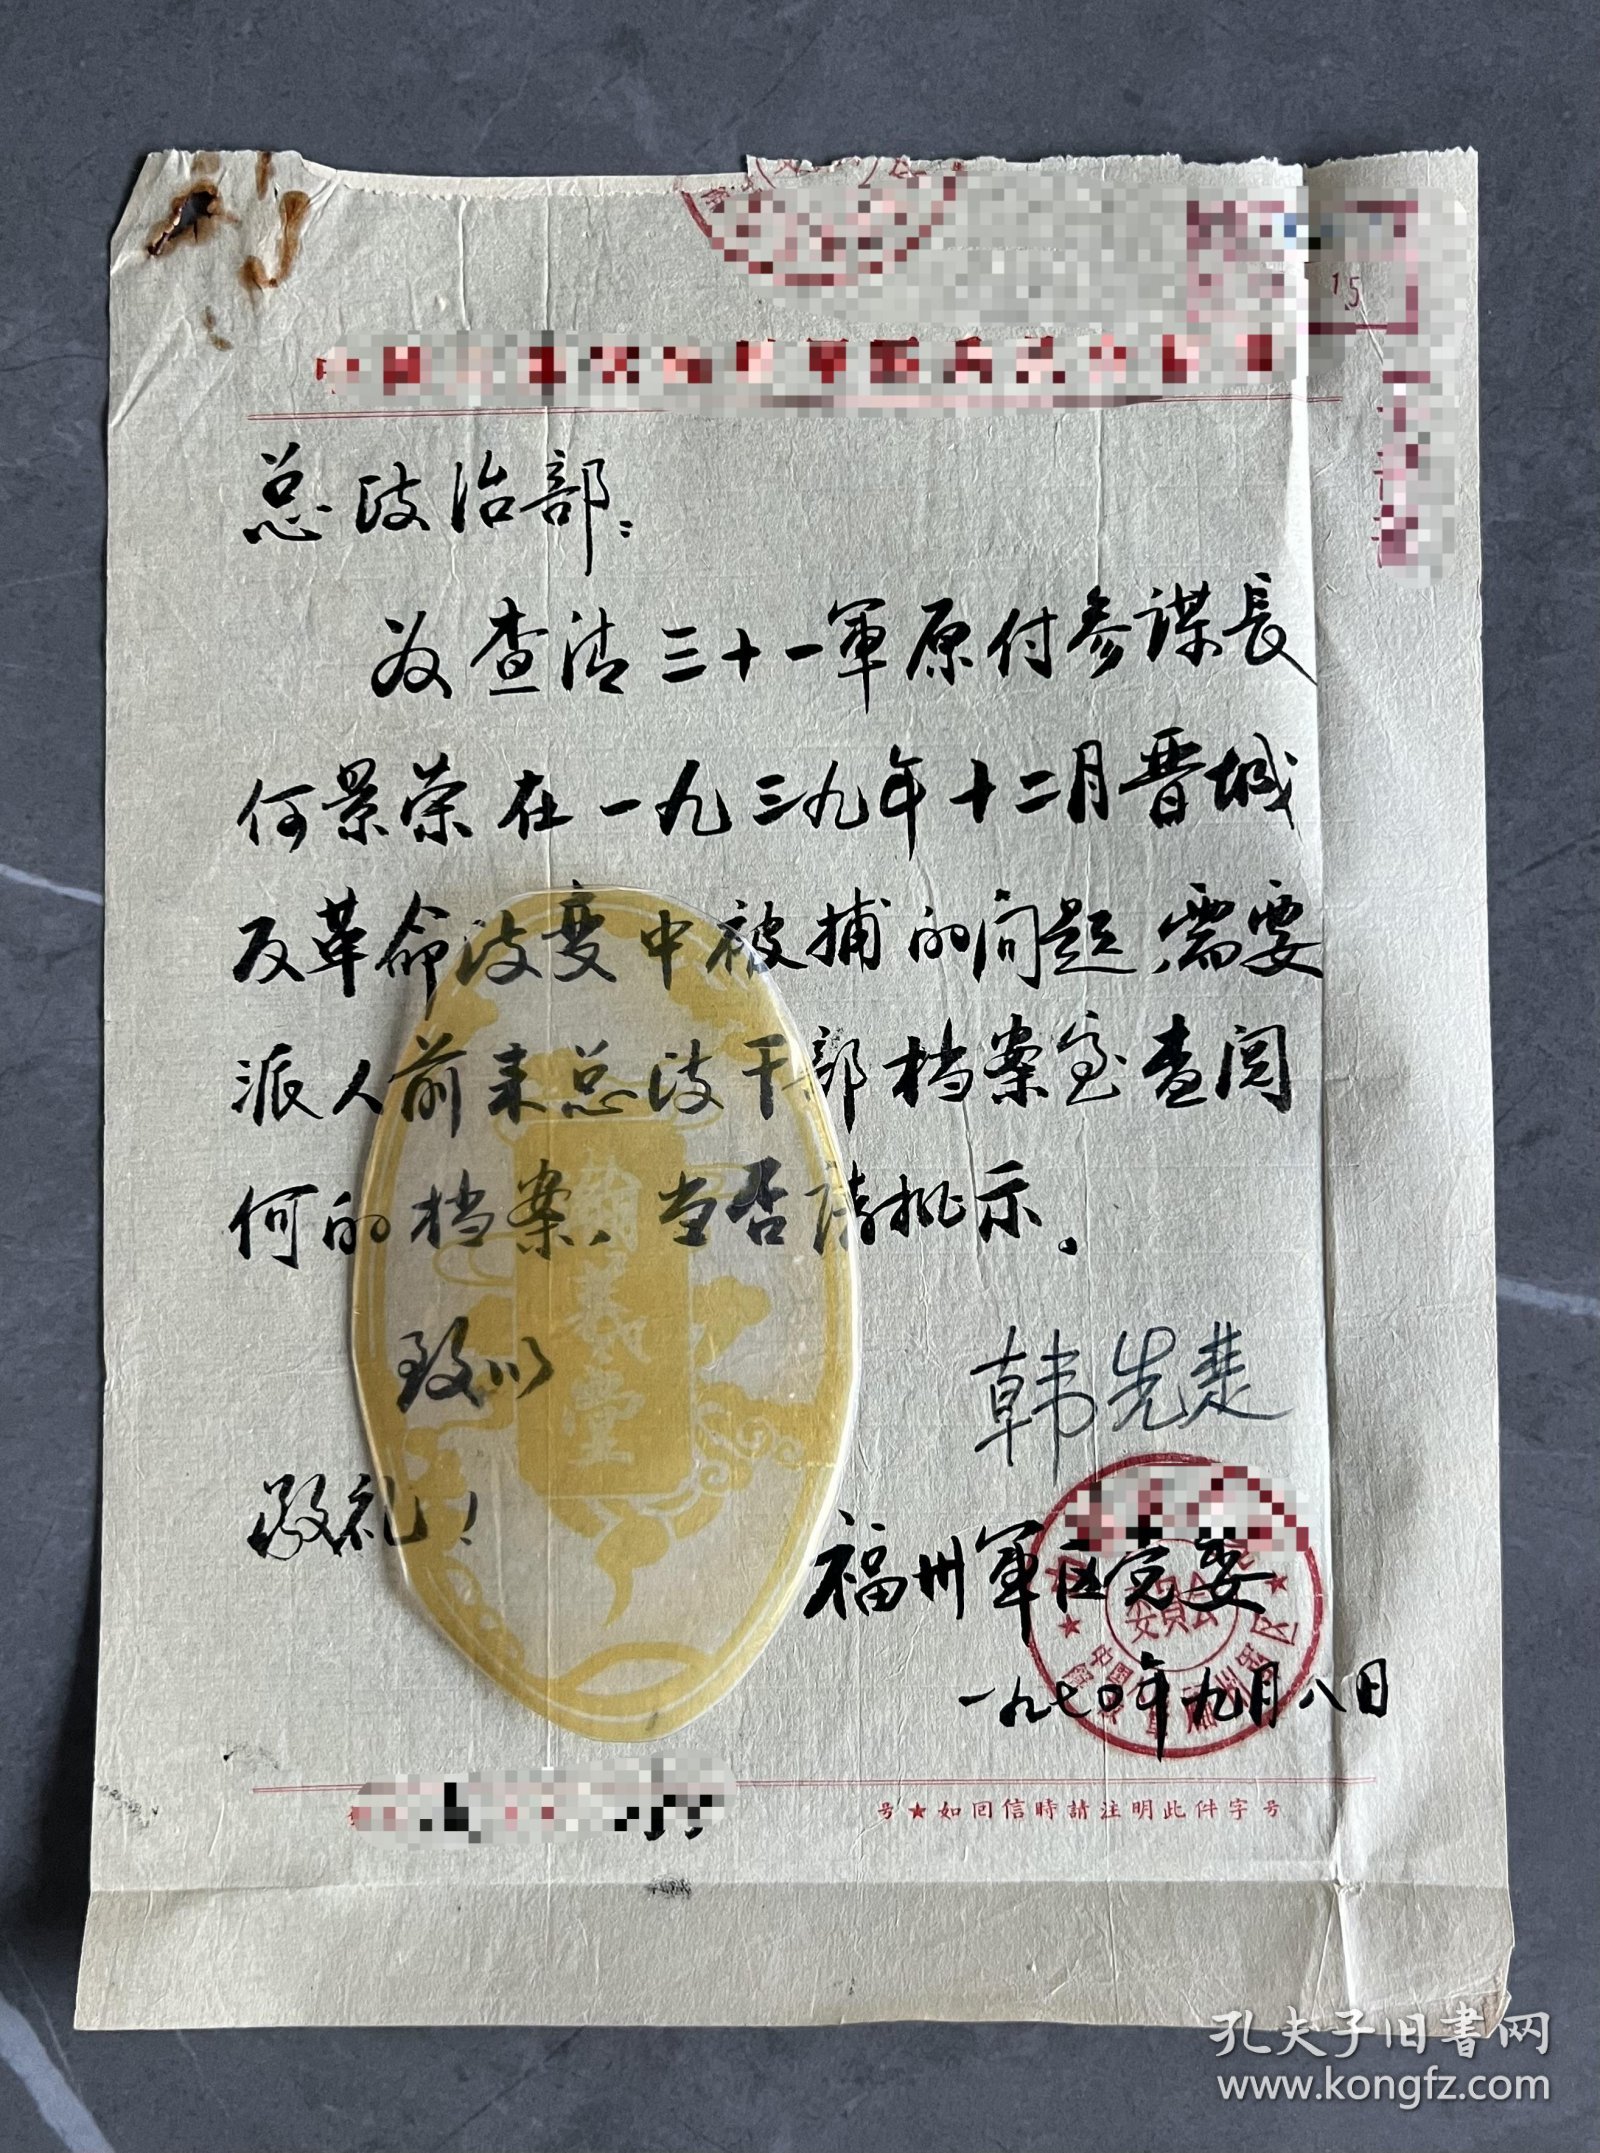 15
总政治部：
为查清三十一軍原付参謀長
何景荣在一九三九年十二月晋城
反革命政变中被捕的问题，需要
派人前来总政干部档案室查阅
何的档案，当否请批示。
致以
敬礼！
韩先楚
福州軍区党委
委員会
一九七〇年九月八日
号★如回信時請注明此件字号
翰羲堂
孔夫子旧書网
www.kongfz.com